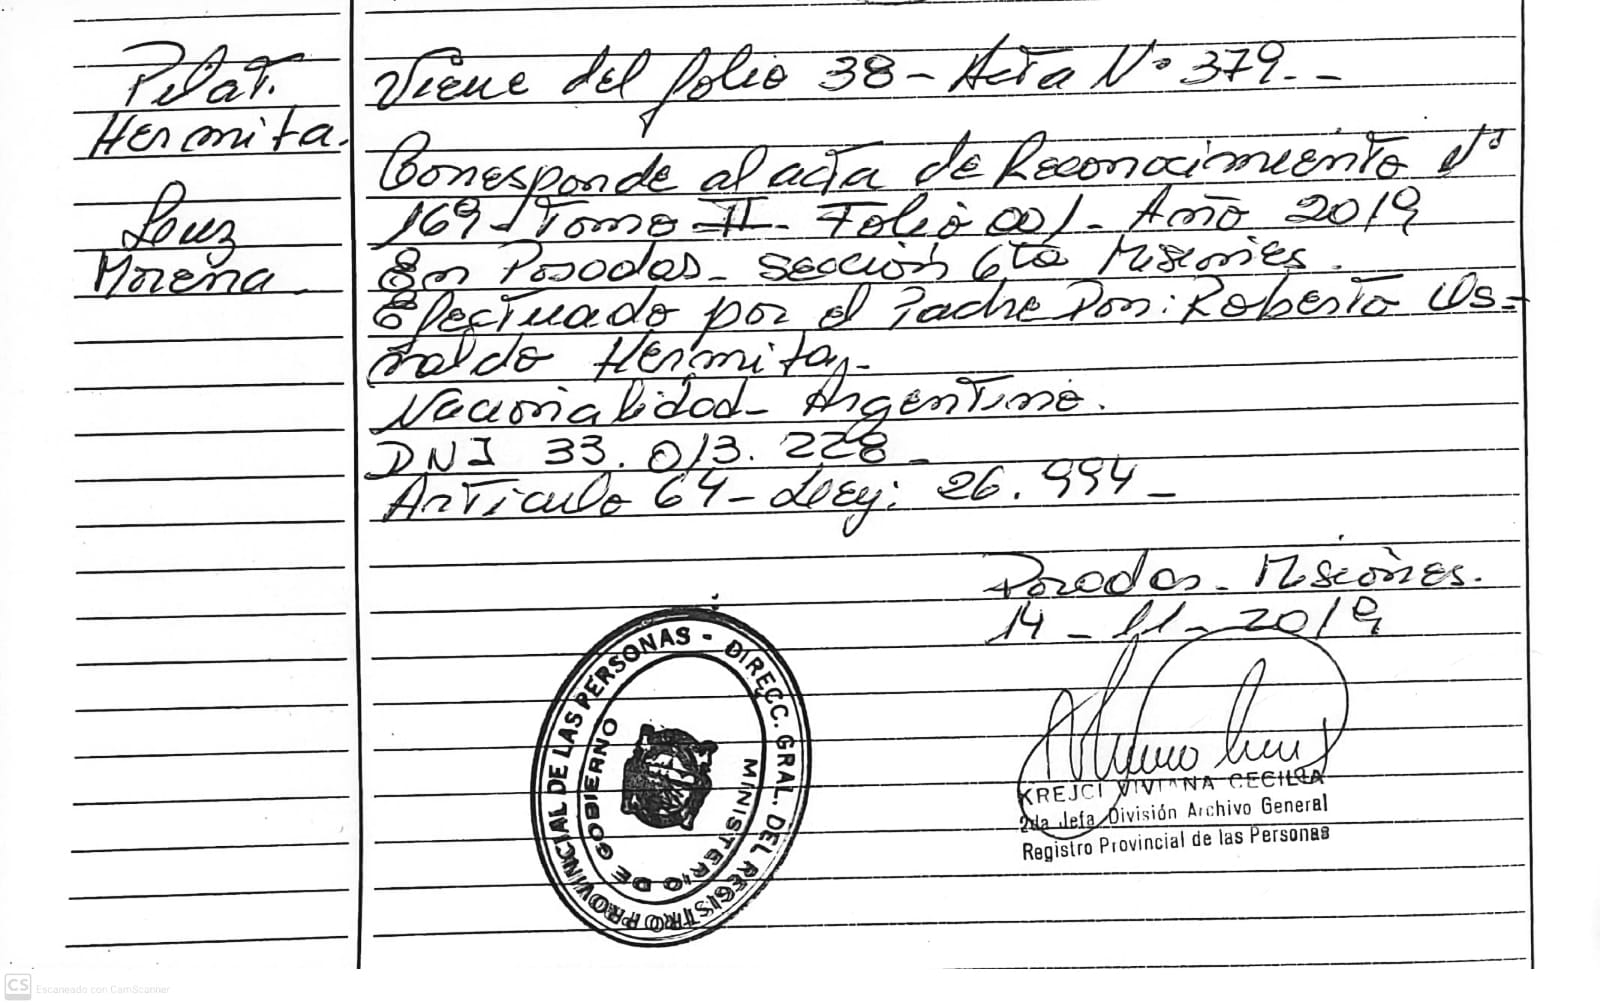 Pilat.
Hermita.
Luz
Morena.
Viene del folio 38 - Acta N° 379. -
Corresponde al acta de Reconocimiento N°
169 - Tomo - II - Folio 001 - Año 2019
En Posadas - Sección 6ta Misiones.
Efectuado por el Padre Don: Roberto Os=
valdo Hermita, -
Nacionalidad - Argentino.
DNI 33.013.228 -
Artículo 64 - Ley: 26.994 -
Posadas - Misiones.
14 - 11 - 2019
KREJCI VIVIANA CECILIA
2da Jefa División Archivo General
Registro Provincial de las Personas
DIRECC. GRAL. DEL REGISTRO PROVINCIAL DE LAS PERSONAS -
MINISTERIO DE GOBIERNO
CS Escaneado con CamScanner